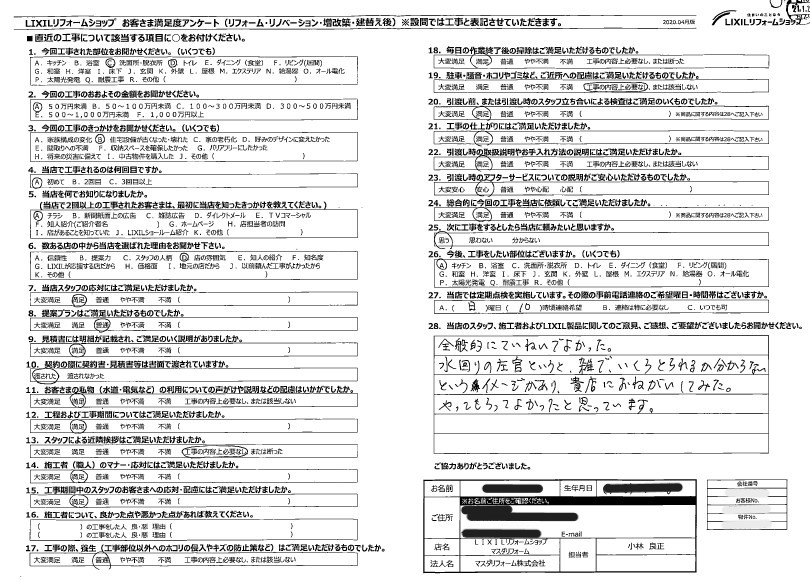 LIXILリフォームショップ お客さま満足度アンケート（リフォーム・リノベーション・増改築・建替え後）※設問では工事と表記させていただきます。
2020.04月版
LIXILリフォームショップ
■直近の工事について該当する項目に○をお付けください。
1．今回工事された部位をお聞かせください。（いくつでも）
A．キッチン B．浴室 C．洗面所・脱衣所 D．トイレ E．ダイニング（食堂） F．リビング（居間）
G．和室 H．洋室 I．床下 J．玄関 K．外壁 L．屋根 M．エクステリア N．給湯器 O．オール電化
P．太陽光発電 Q．耐震工事 R．その他（ ）
2．今回の工事のおおよその金額をお聞かせください。
A．50万円未満 B．50～100万円未満 C．100～300万円未満 D．300～500万円未満
E．500～1,000万円未満 F．1,000万円以上
3．今回の工事のきっかけをお聞かせください。（いくつでも）
A．家族構成の変化 B．住宅設備が古くなった・壊れた C．家の老朽化 D．好みのデザインに変えたかった
E．間取りへの不満 F．収納スペースを確保したかった G．バリアフリーにしたかった
H．将来の災害に備えて I．中古物件を購入した J．その他（ ）
4．当店で工事されるのは何回目ですか。
A．初めて B．2回目 C．3回目以上
5．当店を何でお知りになりましたか。
（当店で2回以上の工事されたお客さまは、最初に当店を知ったきっかけを教えてください。）
A．チラシ B．新聞紙面上の広告 C．雑誌広告 D．ダイレクトメール E．TVコマーシャル
F．知人紹介（ご紹介者名 ） G．ホームページ H．店担当者の訪問
I．店があることを知っていた J．LIXILショールーム紹介 K．その他（ ）
6．数ある店の中から当店を選ばれた理由をお聞かせ下さい。
A．信頼性 B．提案力 C．スタッフの人柄 D．店の雰囲気 E．知人の紹介 F．知名度
G．LIXILが応援する店だから H．価格面 I．地元の店だから J．以前頼んだ工事がよかったから
K．その他（ ）
7．当店スタッフの応対にはご満足いただけましたか。
大変満足 満足 普通 やや不満 不満（ ）
8．提案プランはご満足いただけるものでしたか。
大変満足 満足 普通 やや不満 不満（ ）
9．見積書には明細が記載され、ご満足のいく説明がありましたか。
大変満足 満足 普通 やや不満 不満（ ）
10．契約の際に契約書・見積書等は書面で渡されていますか。
渡された 渡されなかった
11．お客さまの私物（水道・電気など）の利用についての声がけや説明などの配慮はいかがでしたか。
大変満足 満足 普通 やや不満 不満 工事の内容上必要なし、または該当なし
12．工程および工事期間についてはご満足いただけましたか。
大変満足 満足 普通 やや不満 不満（ ）
13．スタッフによる近隣挨拶はご満足いただけましたか。
大変満足 満足 普通 やや不満 不満 工事の内容上必要なし、または断った
14．施工者（職人）のマナー・応対にはご満足いただけましたか。
大変満足 満足 普通 やや不満 不満（ ）
15．工事期間中のスタッフのお客さまへの応対・配慮にはご満足いただけましたか。
大変満足 満足 普通 やや不満 不満（ ）
16．施工者について、良かった点や悪かった点があれば教えてください。
（ ）の工事をした人 良・悪 理由（ ）
（ ）の工事をした人 良・悪 理由（ ）
17．工事の際、養生（工事部位以外へのホコリの侵入やキズの防止策など）はご満足いただけるものでしたか。
大変満足 満足 普通 やや不満 不満 工事の内容上必要なし、または該当なし
18．毎日の作業終了後の掃除はご満足いただけるものでしたか。
大変満足 満足 普通 やや不満 不満 工事の内容上必要なし、または断った
19．駐車・騒音・ホコリやゴミなど、ご近所への配慮はご満足いただけるものでしたか。
大変満足 満足 普通 やや不満 不満 工事の内容上必要なし、または該当なし
20．引渡し前、または引渡し時のスタッフ立ち合いによる検査はご満足のいくものでしたか。
大変満足 満足 普通 やや不満 不満（ ）※商品に関する内容は28へご記入下さい
21．工事の仕上がりにはご満足いただけましたか。
大変満足 満足 普通 やや不満 不満（ ）※商品に関する内容は28へご記入下さい
22．引渡し時の取扱説明やお手入れ方法の説明にはご満足いただけましたか。
大変満足 満足 普通 やや不満 不満 工事の内容上必要なし、または該当なし
23．引渡し時のアフターサービスについての説明がご安心いただけるものでしたか。
大変安心 安心 普通 やや心配 心配（ ）
24．総合的に今回の工事を当店に依頼してご満足いただけましたか。
大変満足 満足 普通 やや不満 不満（ ）※商品に関する内容は28へご記入下さい
25．次に工事をするとしたら当店に頼みたいと思いますか。
思う 思わない 分からない
26．今後、工事をしたい部位はございますか。（いくつでも）
A．キッチン B．浴室 C．洗面所・脱衣所 D．トイレ E．ダイニング（食堂） F．リビング（居間）
G．和室 H．洋室 I．床下 J．玄関 K．外壁 L．屋根 M．エクステリア N．給湯器 O．オール電化
P．太陽光発電 Q．耐震工事 R．その他（ ）
27．当店では定期点検を実施しています。その際の事前電話連絡のご希望曜日・時間帯はございますか。
A．（ 日 ）曜日（ 10 ）時頃連絡希望 B．連絡は特に必要なし C．いつでも可
28．当店のスタッフ、施工者およびLIXIL製品に関してのご意見、ご感想、ご要望がございましたらお聞かせください。
全般的にていねいでよかった。
水回りの左官というと、雑で、いくらとられるか分からない
というイメージがあり、貴店におねがいしてみた。
やってもらってよかったと思っています。
ご協力ありがとうございました。
お名前
生年月日
※お名前ご住所をご確認ください。
ご住所
E-mail
店名
LIXILリフォームショップ
マスダリフォーム
担当者
小林 良正
法人名
マスダリフォーム株式会社
会社番号
お客様No.
物件No.